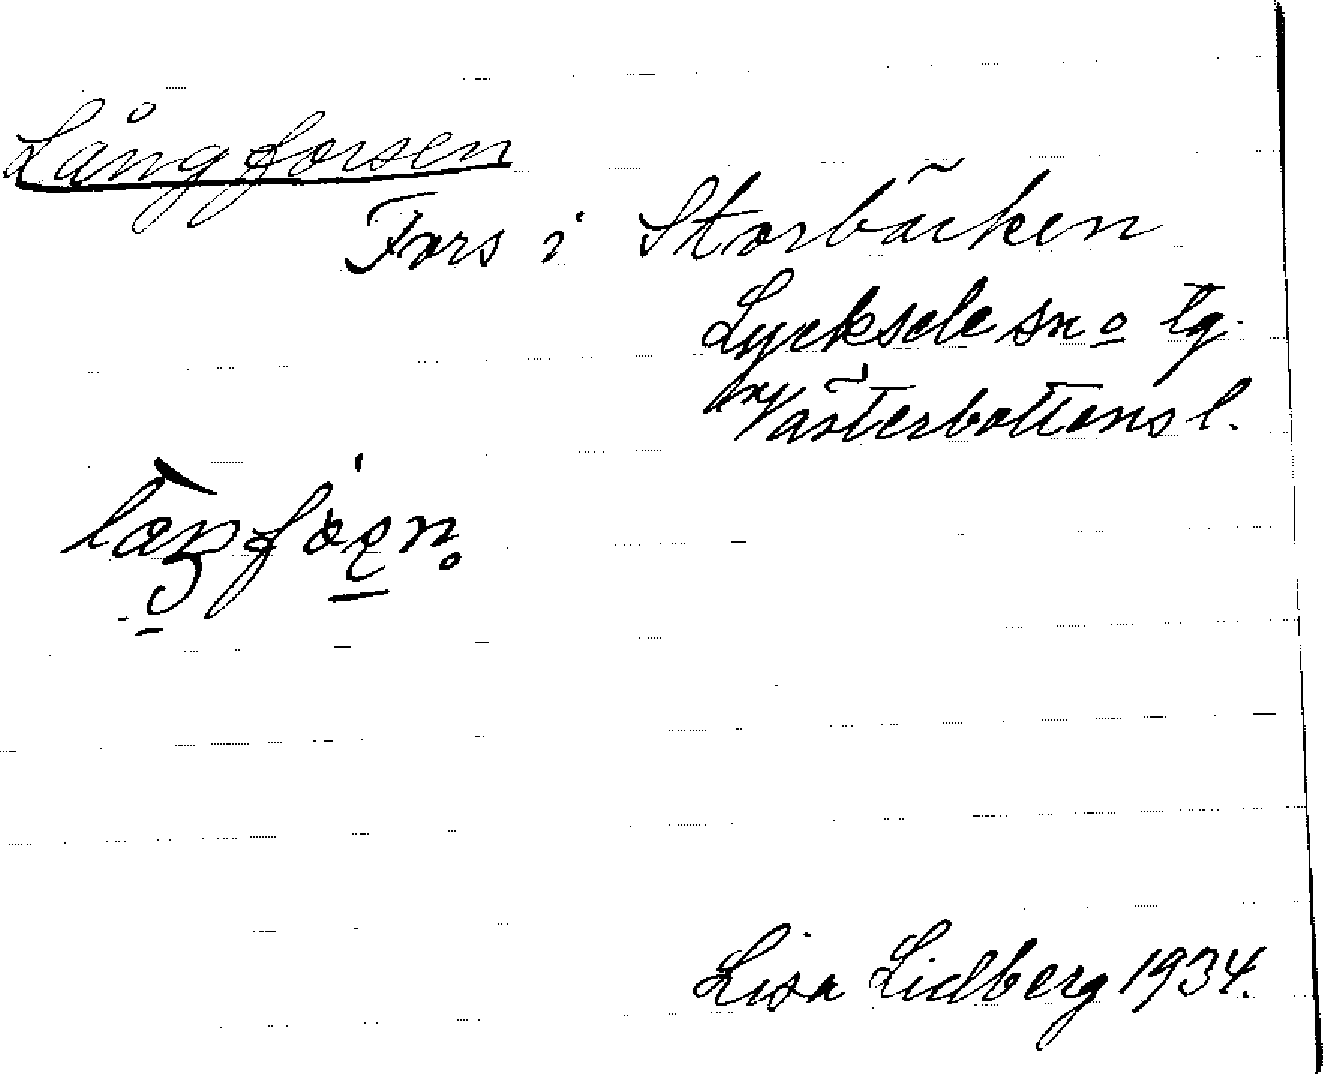 Långforsen
Fors i Storbäcken
Lycksele sn o tg.
Västerbottens l.
Lisa Lidberg 1934.